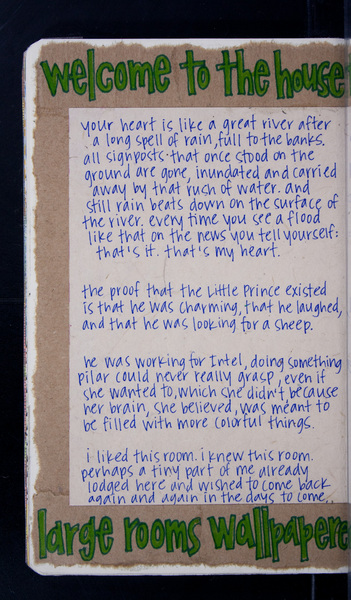 welcome to the house
your heart is like a great river after
a long spell of rain, full to the banks.
all signposts that once stood on the
ground are gone, inundated and carried
away by that rush of water. and
still rain beats down on the surface of
the river. every time you see a flood
like that on the news you tell yourself:
that's it. that's my heart.
the proof that the Little Prince existed
is that he was charming, that he laughed,
and that he was looking for a sheep.
he was working for Intel, doing something
pilar could never really grasp, even if
she wanted to, which she didn't because
her brain, she believed, was meant to
be filled with more colorful things.
i liked this room. i knew this room.
perhaps a tiny part of me already
lodged here and wished to come back
again and again in the days to come.
large rooms wallpapere